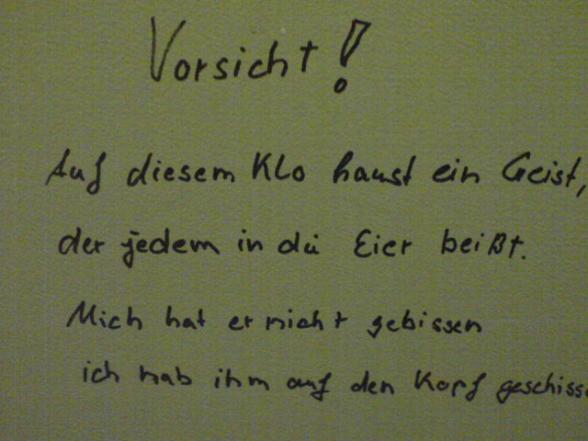 Vorsicht!
Auf diesem Klo haust ein Geist,
der jedem in die Eier beißt.
Mich hat er nicht gebissen
ich hab ihm auf den Kopf geschisse